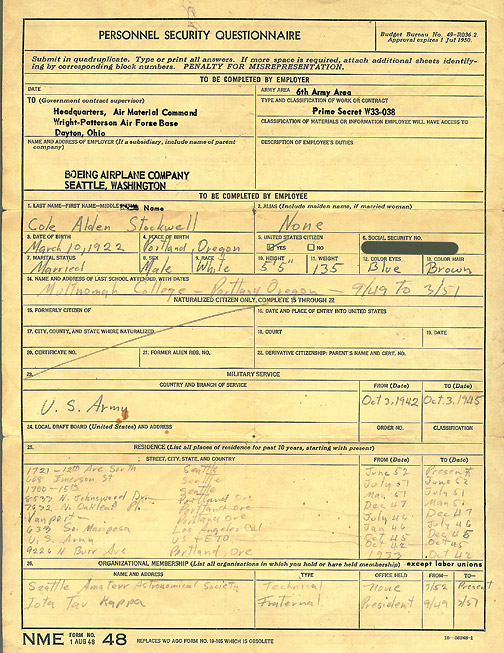 PERSONNEL SECURITY QUESTIONNAIRE
Budget Bureau No. 49-R036.2.
Approval expires 1 Jul 1950.
Submit in quadruplicate. Type or print all answers. If more space is required, attach additional sheets identify-
ing by corresponding block numbers. PENALTY FOR MISREPRESENTATION.
TO BE COMPLETED BY EMPLOYER
DATE
ARMY AREA 6th Army Area
TO (Government contract supervisor)
TYPE AND CLASSIFICATION OF WORK OR CONTRACT
Headquarters, Air Material Command
Prime Secret W33-038
Wright-Patterson Air Force Base
CLASSIFICATION OF MATERIALS OR INFORMATION EMPLOYEE WILL HAVE ACCESS TO
Dayton, Ohio
NAME AND ADDRESS OF EMPLOYER (If a subsidiary, include name of parent company)
DESCRIPTION OF EMPLOYEE'S DUTIES
BOEING AIRPLANE COMPANY
SEATTLE, WASHINGTON
TO BE COMPLETED BY EMPLOYEE
1. LAST NAME—FIRST NAME—MIDDLE Name
2. ALIAS (Include maiden name, if married woman)
Cole Alden Stockwell
None
3. DATE OF BIRTH 4. PLACE OF BIRTH 5. UNITED STATES CITIZEN 6. SOCIAL SECURITY NO.
March 10, 1922 Portland, Oregon YES NO
7. MARITAL STATUS 8. SEX 9. RACE 10. HEIGHT 11. WEIGHT 12. COLOR EYES 13. COLOR HAIR
Married Male White 5'5" 135 Blue Brown
14. NAME AND ADDRESS OF LAST SCHOOL ATTENDED WITH DATES
Multnomah College - Portland Oregon - 9/49 to 3/51
NATURALIZED CITIZEN ONLY, COMPLETE 15 THROUGH 22
15. FORMERLY CITIZEN OF 16. DATE AND PLACE OF ENTRY INTO UNITED STATES
17. CITY, COUNTY, AND STATE WHERE NATURALIZED 18. COURT 19. DATE
20. CERTIFICATE NO. 21. FORMER ALIEN REG. NO. 22. DERIVATIVE CITIZENSHIP: PARENT'S NAME AND CERT. NO.
23. MILITARY SERVICE
COUNTRY AND BRANCH OF SERVICE FROM (Date) TO (Date)
U. S. Army Oct 3, 1942 Oct 3, 1945
24. LOCAL DRAFT BOARD (United States) AND ADDRESS ORDER NO. CLASSIFICATION
25. RESIDENCE (List all places of residence for past 10 years, starting with present)
STREET, CITY, STATE, AND COUNTRY FROM (Date) TO (Date)
1721 - 12th Ave South Seattle June 52 Present
Seattle July 51 June 52
1700 - 15th Seattle May 51 July 51
Portland Ore Dec 47
7632 N. Oakland Portland Ore July 46 Dec 47
Vanport - Portland Ore Jan 46 July 46
633 Mariposa Los Angeles Cal Oct 45
U. S. Army US + ETO Oct 42 Oct 45
9226 N Burr Ave Portland, Ore 1933 Oct 42
26. ORGANIZATIONAL MEMBERSHIP (List all organizations in which you hold or have held membership) except labor unions
NAME AND ADDRESS TYPE OFFICE HELD FROM— TO—
Seattle Amateur Astronomical Society Technical None 7/52 Present
Iota Tau Kappa Fraternal President 9/49 3/51
NME FORM NO. 1 AUG 48 48 REPLACES WD AGO FORM NO. 19-185 WHICH IS OBSOLETE